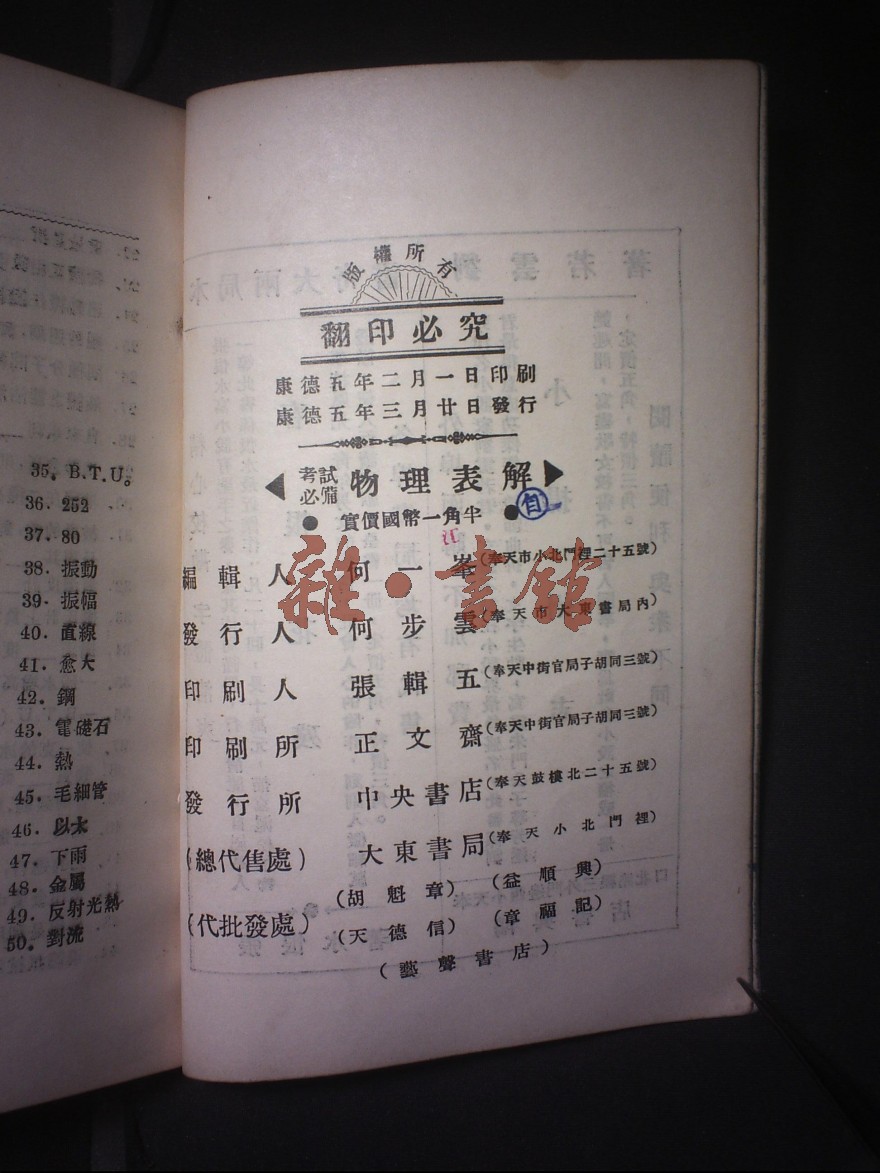 35. B.T.U。
36. 252
37. 80
38. 振動
39. 振幅
40. 直線
41. 愈大
42. 鋼
43. 電磁石
44. 熱
45. 毛細管
46. 以太
47. 下雨
48. 金屬
49. 反射光熱
50. 對流
版權所有
翻印必究
康德五年二月一日印刷
康德五年三月廿日發行
考試必備 物理表解
實價國幣一角半
自
江
編輯人 何一峯 (奉天市小北門裡二十五號)
雜·書館
發行人 何步雲 (奉天市大東書局內)
印刷人 張輯五 (奉天中街官局子胡同三號)
印刷所 正文齋 (奉天中街官局子胡同三號)
發行所 中央書店 (奉天鼓樓北二十五號)
(總代售處) 大東書局 (奉天小北門裡)
(代批發處) (胡魁章) (益順興)
(天德信) (章福記)
(藝聲書店)